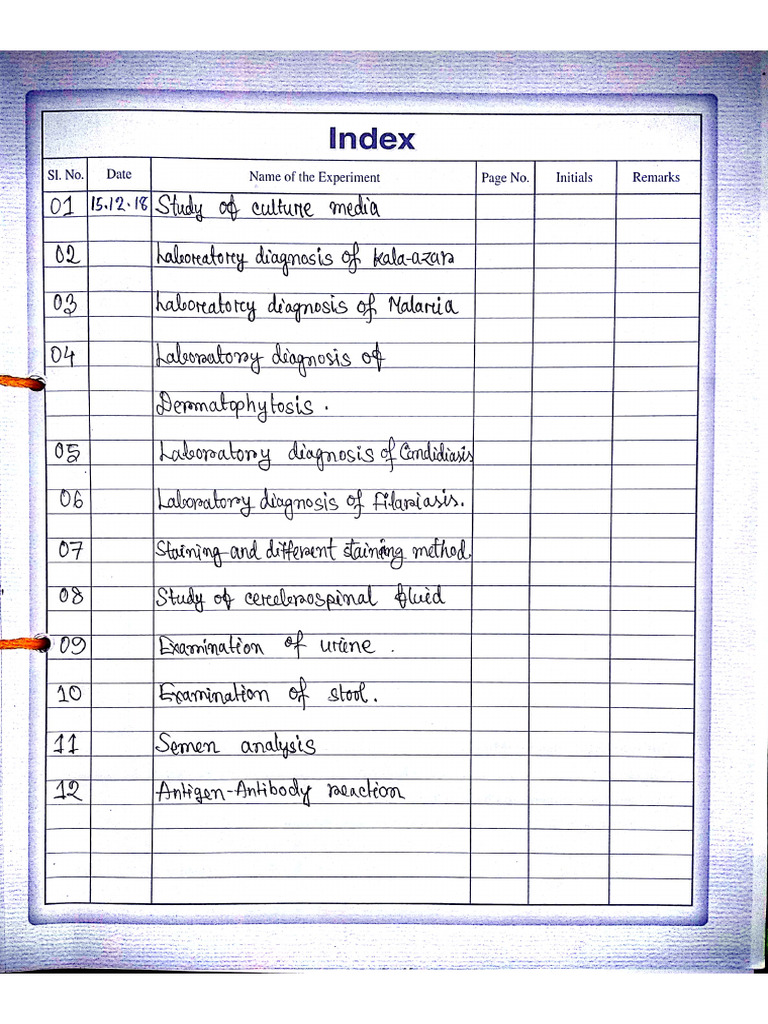 Index
Sl. No. Date Name of the Experiment Page No. Initials Remarks
01 15.12.18 Study of culture media
02 Laboratory diagnosis of Kala-azar
03 Laboratory diagnosis of Malaria
04 Laboratory diagnosis of
Dermatophytosis.
05 Laboratory diagnosis of Candidiasis
06 Laboratory diagnosis of Filariasis.
07 Staining and different staining method.
08 Study of cerebrospinal fluid
09 Examination of urine.
10 Examination of stool.
11 Semen analysis
12 Antigen-Antibody reaction